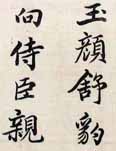 玉顏舒豹
向侍臣親